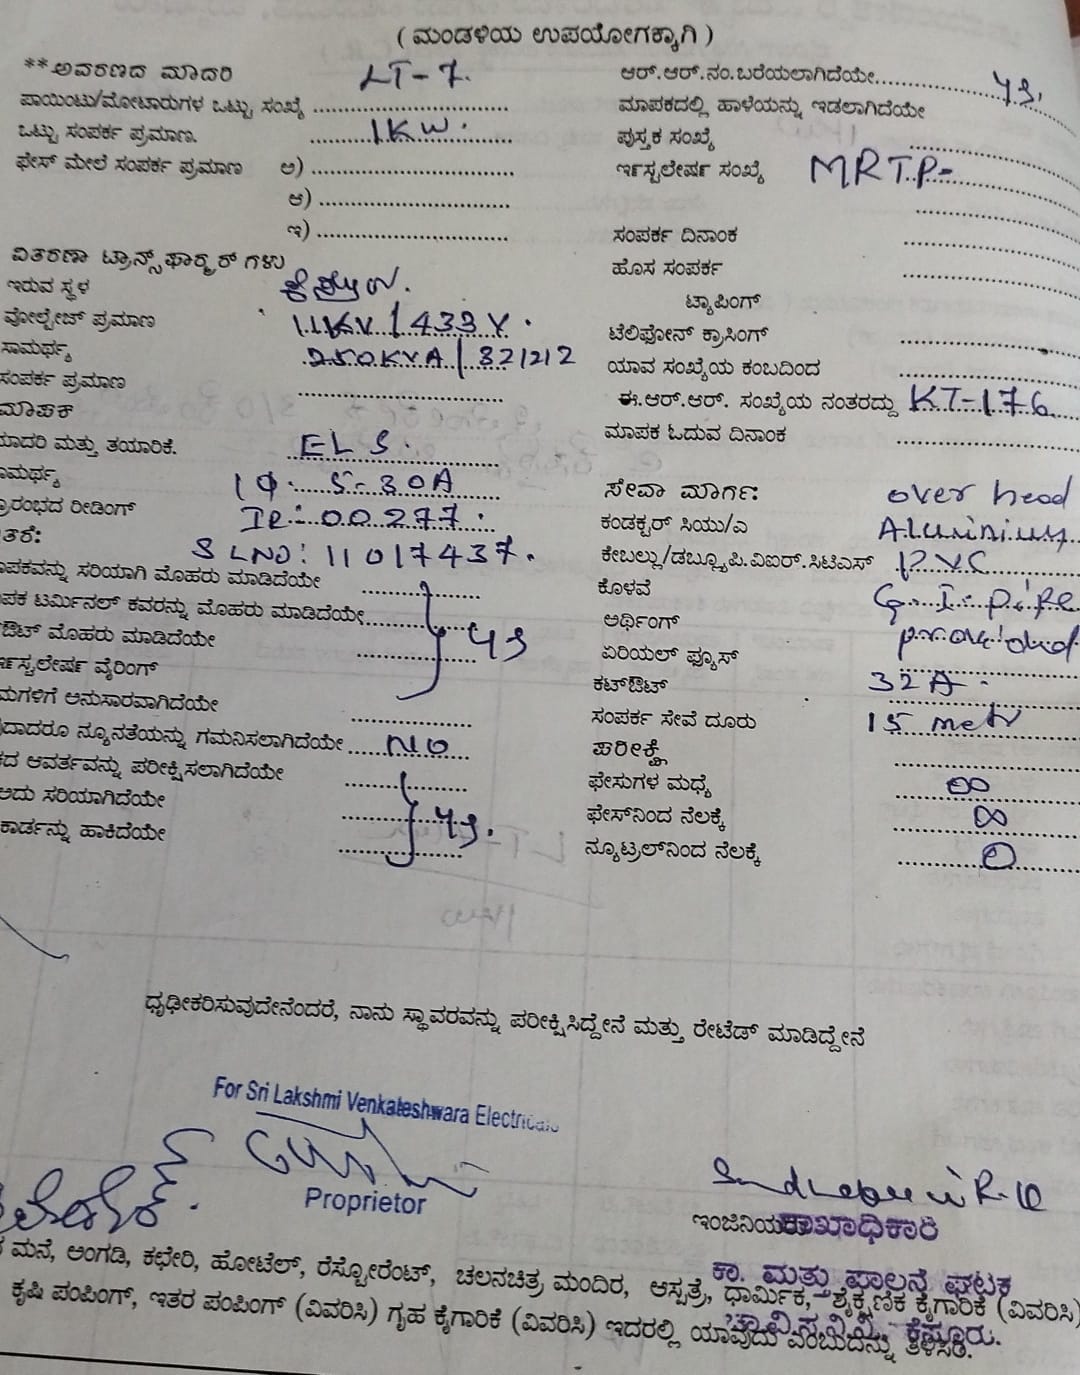 ( ಮಂಡಳಿಯ ಉಪಯೋಗಕ್ಕಾಗಿ )
**ಆವರಣದ ಮಾದರಿ LT-7.
ಪಾಯಿಂಟು/ಮೋಟಾರುಗಳ ಒಟ್ಟು ಸಂಖ್ಯೆ
ಒಟ್ಟು ಸಂಪರ್ಕ ಪ್ರಮಾಣ. 1KW.
ಫೇಸ್ ಮೇಲೆ ಸಂಪರ್ಕ ಪ್ರಮಾಣ ಅ)
ಆ)
ಇ)
ವಿತರಣಾ ಟ್ರಾನ್ಸ್‌ಫಾರ್ಮರ್ ಗಳು
ಇರುವ ಸ್ಥಳ
ವೋಲ್ಟೇಜ್ ಪ್ರಮಾಣ 11KV/433V.
ಸಾಮರ್ಥ್ಯ 250KVA/321212
ಸಂಪರ್ಕ ಪ್ರಮಾಣ
ಮಾಪಕ
ಮಾದರಿ ಮತ್ತು ತಯಾರಿಕೆ. ELS.
ಸಾಮರ್ಥ್ಯ 1Φ. 5-30A
ಪ್ರಾರಂಭದ ರೀಡಿಂಗ್ IR:-00277.
ತರೆ: SLNO: 11017437.
ಮಾಪಕವನ್ನು ಸರಿಯಾಗಿ ಮೊಹರು ಮಾಡಿದೆಯೇ
ಮಾಪಕ ಟರ್ಮಿನಲ್ ಕವರನ್ನು ಮೊಹರು ಮಾಡಿದೆಯೇ
ಔಟ್ ಮೊಹರು ಮಾಡಿದೆಯೇ yes
ಇನ್ಸ್ಟಲೇಷನ್ ವೈರಿಂಗ್
ನಿಯಮಗಳಿಗೆ ಅನುಸಾರವಾಗಿದೆಯೇ
ಯಾವುದಾದರೂ ನ್ಯೂನತೆಯನ್ನು ಗಮನಿಸಲಾಗಿದೆಯೇ NO
ಮಾಪಕದ ಆವರ್ತವನ್ನು ಪರೀಕ್ಷಿಸಲಾಗಿದೆಯೇ
ಅದು ಸರಿಯಾಗಿದೆಯೇ
ಕಾರ್ಡನ್ನು ಹಾಕಿದೆಯೇ yes.
ಆರ್.ಆರ್.ನಂ.ಬರೆಯಲಾಗಿದೆಯೇ yes.
ಮಾಪಕದಲ್ಲಿ ಹಾಳೆಯನ್ನು ಇಡಲಾಗಿದೆಯೇ
ಪುಸ್ತಕ ಸಂಖ್ಯೆ
ಇನ್ಸ್ಟಲೇಷನ್ ಸಂಖ್ಯೆ MRTP-
ಸಂಪರ್ಕ ದಿನಾಂಕ
ಹೊಸ ಸಂಪರ್ಕ
ಟ್ಯಾಪಿಂಗ್
ಟೆಲಿಫೋನ್ ಕ್ರಾಸಿಂಗ್
ಯಾವ ಸಂಖ್ಯೆಯ ಕಂಬದಿಂದ
ಈ.ಆರ್.ಆರ್. ಸಂಖ್ಯೆಯ ನಂತರದ್ದು KT-176
ಮಾಪಕ ಓದುವ ದಿನಾಂಕ
ಸೇವಾ ಮಾರ್ಗ: over head
ಕಂಡಕ್ಟರ್ ಸಿಯು/ಎ Aluminium
ಕೇಬಲ್ಲು/ಡಬ್ಲ್ಯೂ.ಪಿ.ವಿಐಆರ್.ಸಿಟಿಎಸ್ PVC
ಕೊಳವೆ G.I. pipe
ಅರ್ಥಿಂಗ್ provided
ಏರಿಯಲ್ ಫ್ಯೂಸ್
ಕಟ್‌ಔಟ್ 32A-
ಸಂಪರ್ಕ ಸೇವೆ ದೂರು 15 metr
ಪರೀಕ್ಷೆ
ಫೇಸುಗಳ ಮಧ್ಯೆ ∞
ಫೇಸ್‌ನಿಂದ ನೆಲಕ್ಕೆ ∞
ನ್ಯೂಟ್ರಲ್‌ನಿಂದ ನೆಲಕ್ಕೆ 0
ಧೃಢೀಕರಿಸುವುದೇನೆಂದರೆ, ನಾನು ಸ್ಥಾವರವನ್ನು ಪರೀಕ್ಷಿಸಿದ್ದೇನೆ ಮತ್ತು ರೇಟೆಡ್ ಮಾಡಿದ್ದೇನೆ
For Sri Lakshmi Venkateshwara Electricals
Proprietor
ಇಂಜಿನಿಯರು
ಶಾಖಾಧಿಕಾರಿ
ಕಾ. ಮತ್ತು ಪಾಲನೆ ಘಟಕ
ಮನೆ, ಅಂಗಡಿ, ಕಛೇರಿ, ಹೋಟೆಲ್, ರೆಸ್ಟೋರೆಂಟ್, ಚಲನಚಿತ್ರ ಮಂದಿರ, ಆಸ್ಪತ್ರೆ, ಧಾರ್ಮಿಕ, ಶೈಕ್ಷಣಿಕ ಕೈಗಾರಿಕೆ (ವಿವರಿಸಿ)
ಚಾ.ವಿ.ಸ.ನಿ.ನಿ.
ಕೃಷಿ ಪಂಪಿಂಗ್, ಇತರ ಪಂಪಿಂಗ್ (ವಿವರಿಸಿ) ಗೃಹ ಕೈಗಾರಿಕೆ (ವಿವರಿಸಿ) ಇದರಲ್ಲಿ ಯಾವುದು ಎಂಬುದನ್ನು ತಿಳಿಸಿರಿ.